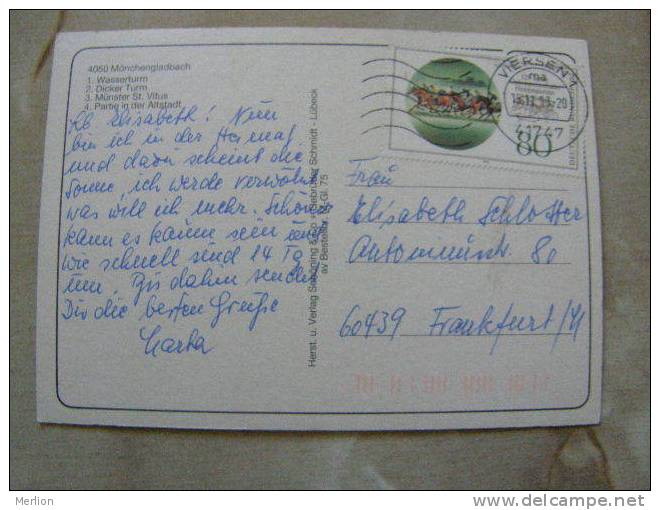 4050 Mönchengladbach
1. Wasserturm
2. Dicker Turm
3. Münster St. Vitus
4. Partie in der Altstadt
Lb. Elisabeth! Nun
bin ich in der Heimat
und dazu scheint die
Sonne, ich werde verwöhnt
was will ich mehr. Schöner
kann es kaum sein und
wie schnell sind 14 Tg
um. Bis dahin sendet
Dir die besten Grüße
Herst. u. Verlag Schöning & Co + Gebrüder Schmidt - Lübeck
VIERSEN 1
-20
41747
80
DEUTSCHE
Frau
Elisabeth Schlosser
80
60439 Frankfurt/M
Merlion
www.delcampe.net